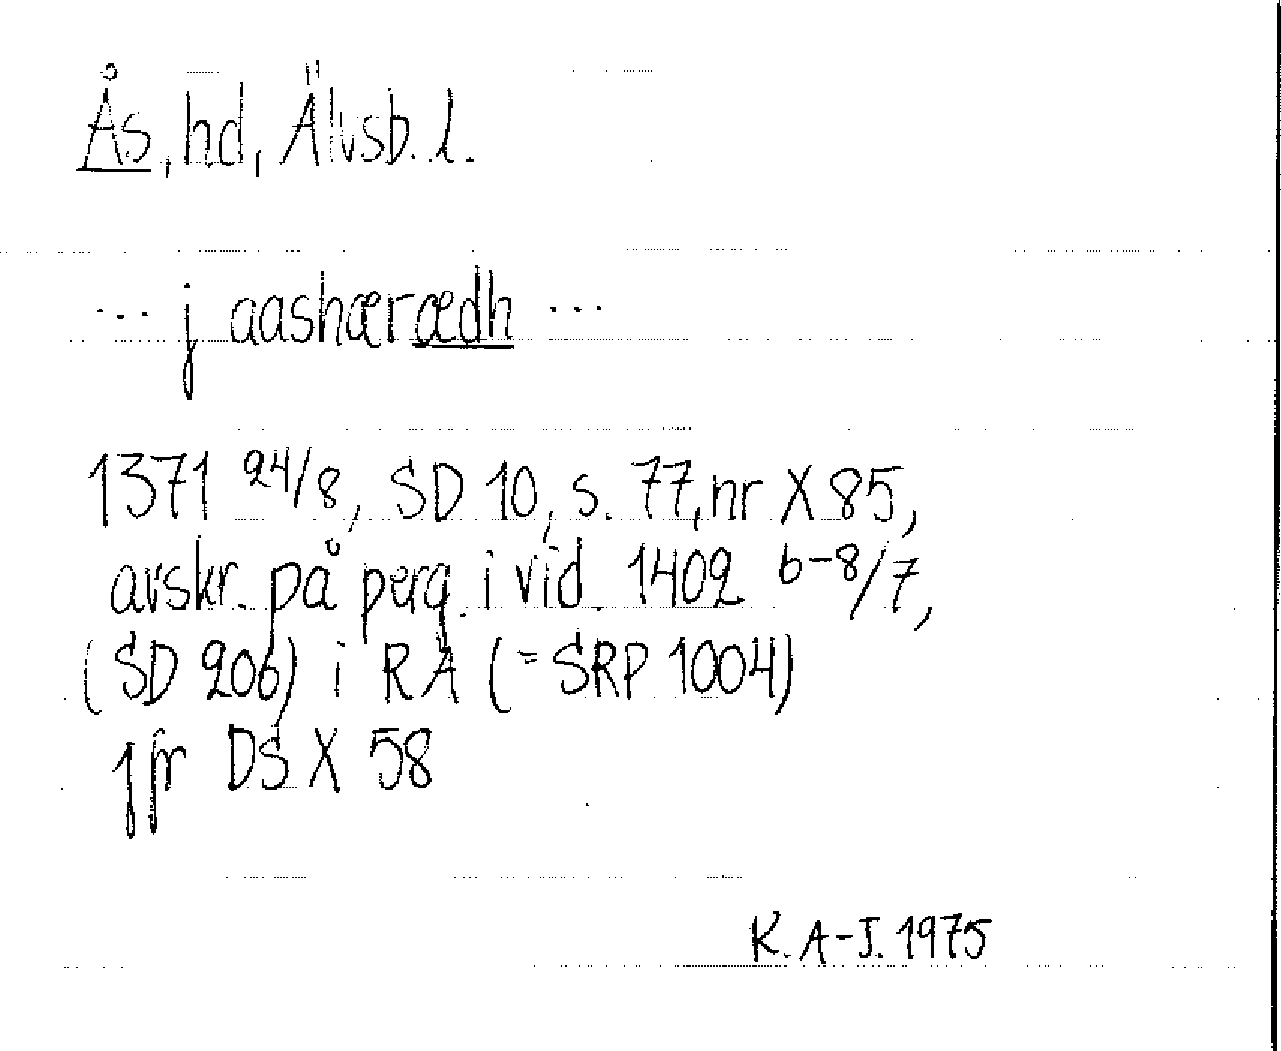 Ås, hd, Älvsb. l.
... j aashæræedh ...
1371 24/8, SD 10, s. 77, nr X 85,
avskr. på perg. i vid. 1402 6-8/7,
(SD 206) i RA (= SRP 1004)
jfr DS X 58
K. A-J. 1975